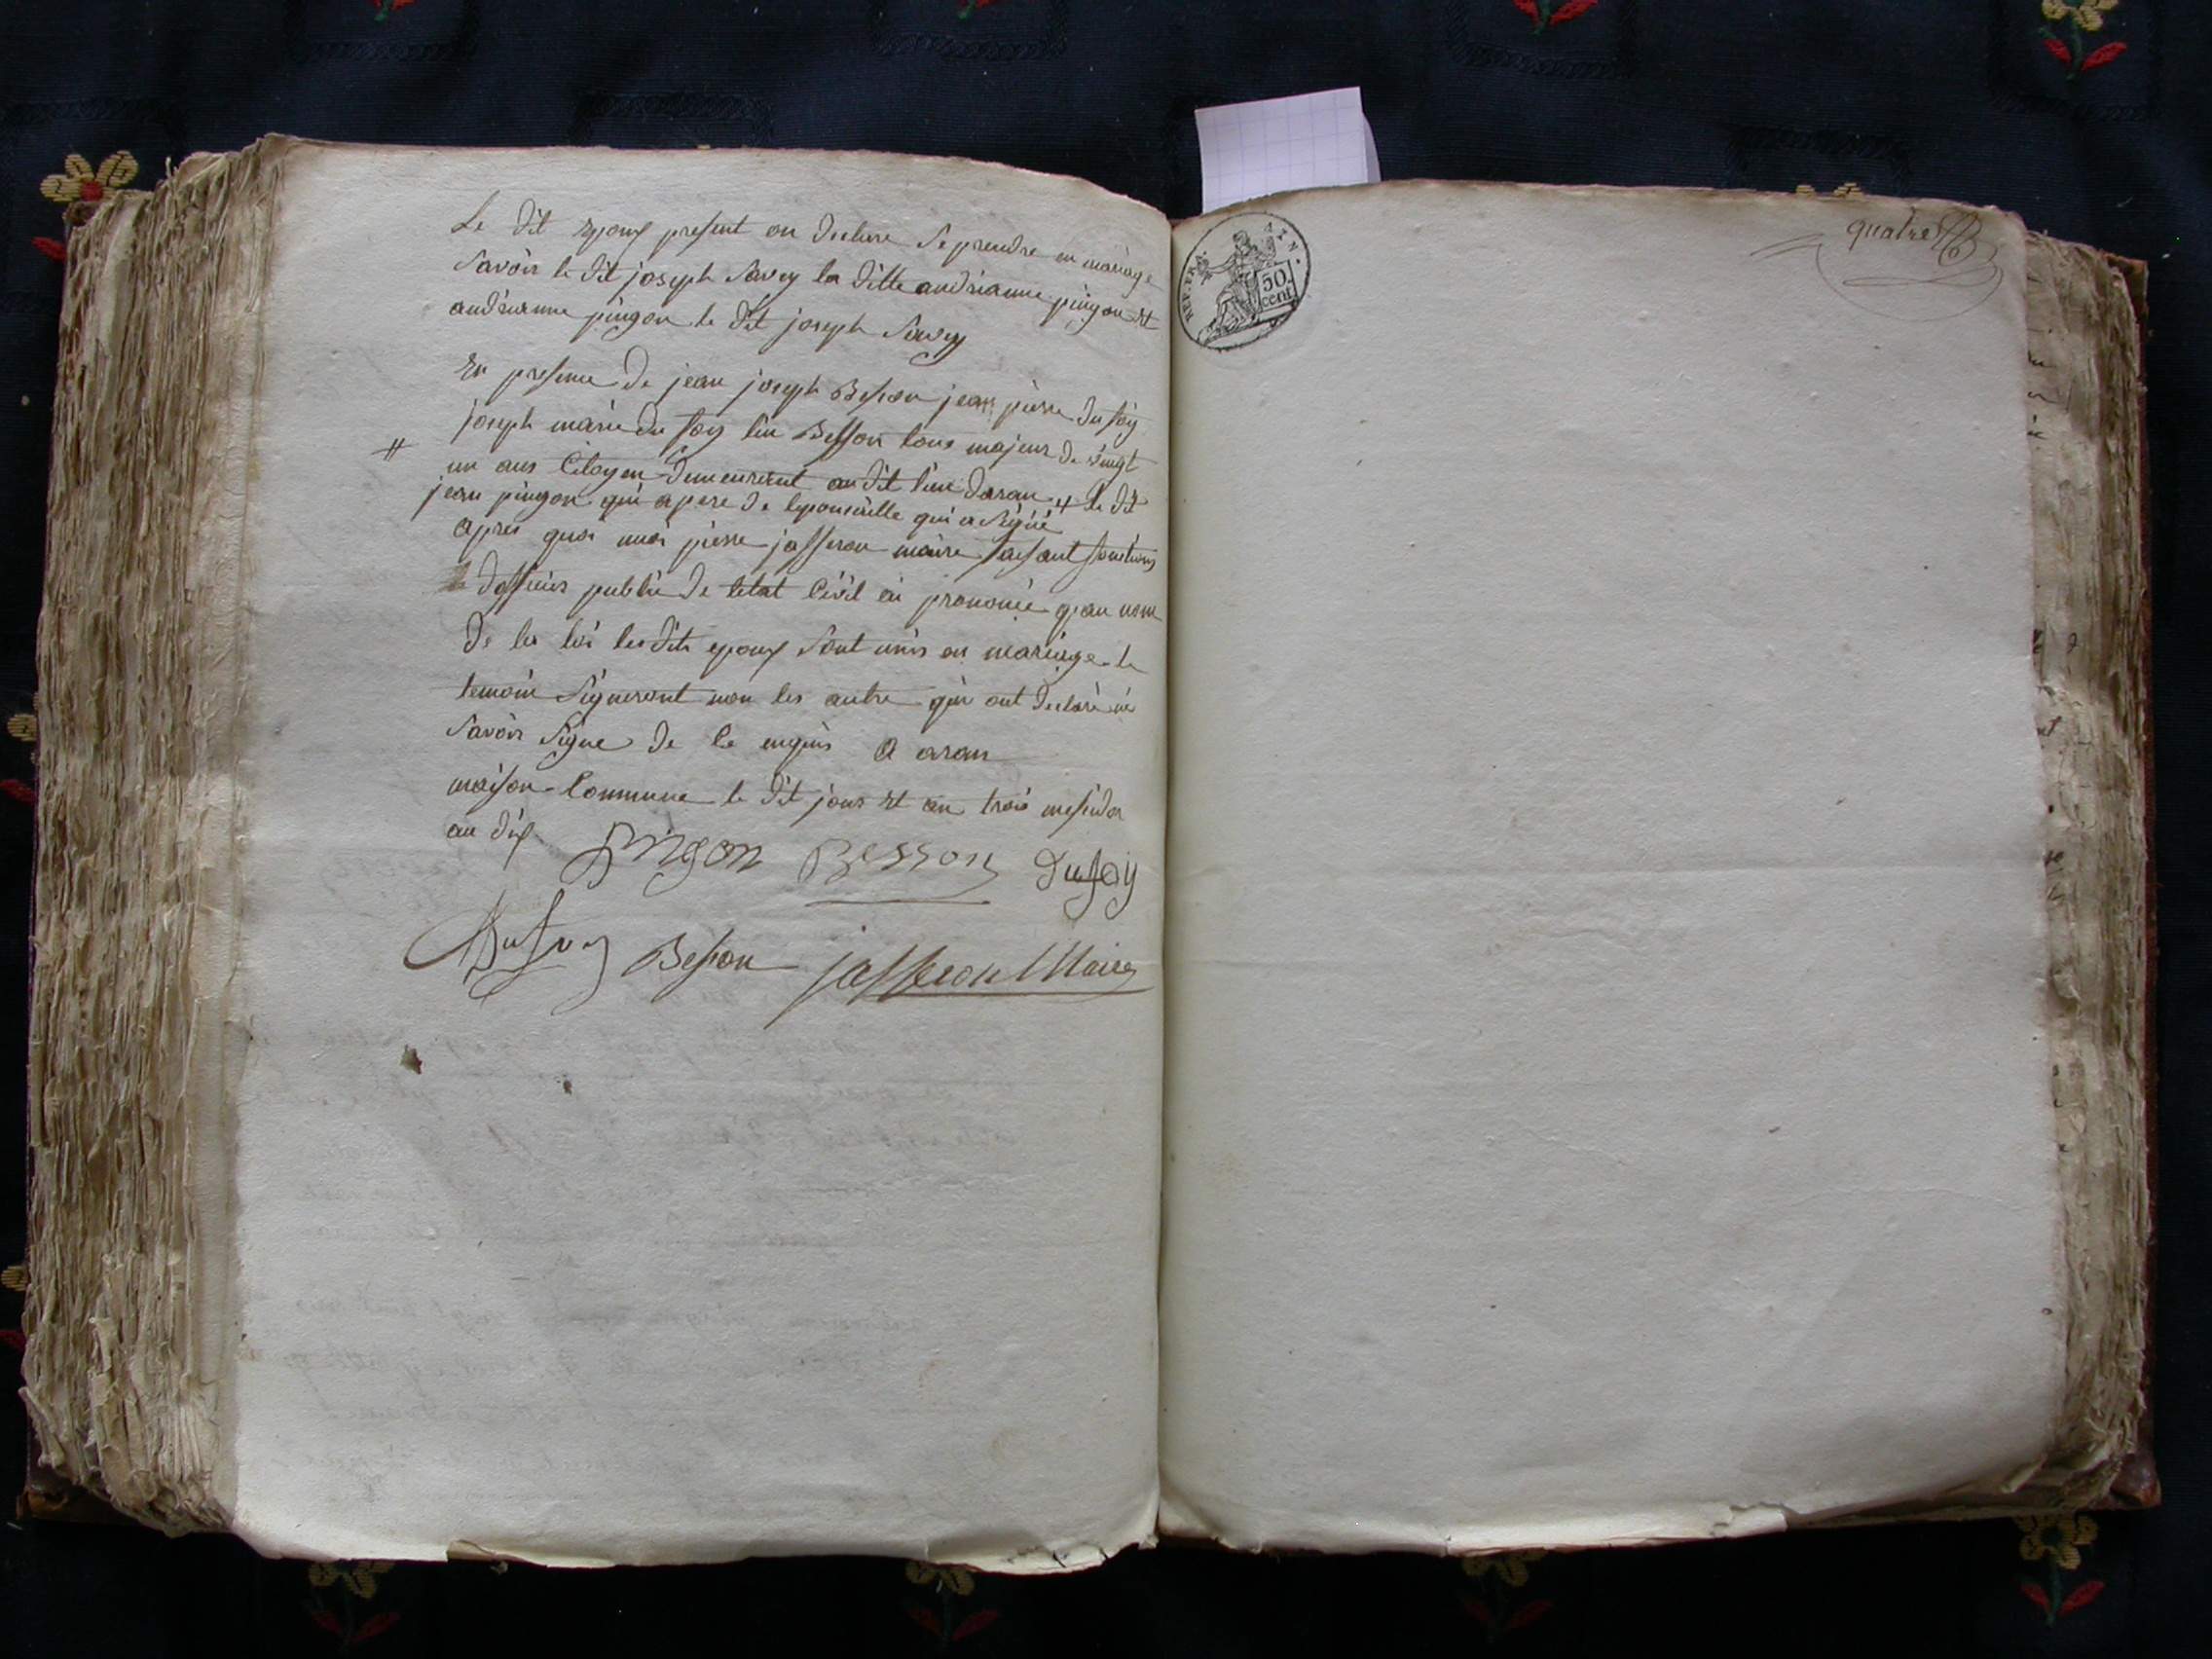 Le dit Epoux present on declare se prendre en mariage
Savoir le dit joseph Savey la ditte andrianne pingon et
andrianne pingon le dit joseph Savey
En presence de jean joseph Besson jean pierre dufoy
joseph marie du foy Besson tous majeur de vingt
un ans Citoyen demeurerant au dit lieu daran # le dit
# jean pingon qui a pere de qui a Signé
apres quoi moi pierre jasseron maire faisant fonctions
dofficier public de letat Civil ai prononcé qu'au nom
De la loi les dits epoux sont unis en mariage le
temoin Signeront non les autre qui ont declaré ne
Savoir Signe de ce enquis a aran
maison Commune le dit jour et an trois messidor
an dix pingon Besson dufoy
Dufoy Besson jasseron Maire
REP. FRA.
50
cent.
quatre